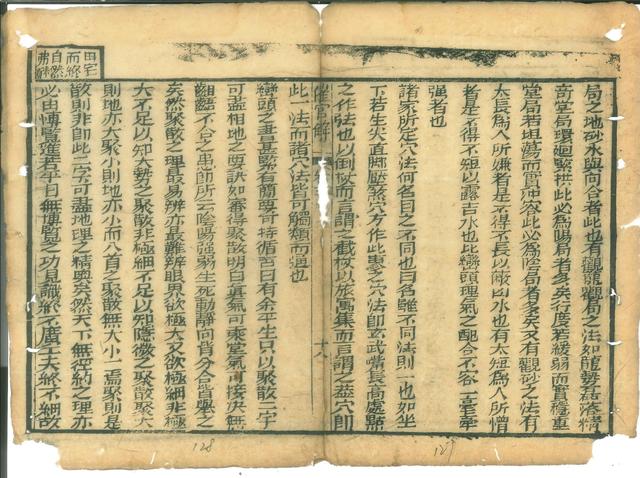 局之地砂水與向合者此也有觀龍觀局之法如龍勢磊落精
奇堂局環迴緊拱此必為陽局者多矣行度若緩弱而實穩重
堂局若坦蕩而實沖容此必為陰局者多矣又有觀砂之法有
太長為人所嫌者是不得不長以蔽凶水也有太短為人所憎
者是不得不短以露吉水也此巒頭理氣之配合不容一毫牽
強者也
諸家所定穴法何名目之不同也曰名雖不同法則一也如坐
下若生尖直脚壓煞穴方作此
之作法也以倒杖而言謂之截杖以旅寓集而言謂之
此一法而諸穴法皆可觸類而通也
巒頭之書甚繁有簡要可持循否曰有余平生只以聚散二字
可盡相地之要訣如審得聚散明白真氣可乘堂氣可接決無
齟齬不合之患即所云陰陽強弱生死動靜向背分合皆舉之
矣然聚散之理最易辨亦最難辨眼界欲極大又欲極細非極
大不足以知大勢之聚散非極細不足以知隱微之聚散聚大
則地亦大聚小則地亦小而八首之聚散無大小一焉聚則是
散則非即此二字可盡地理之精奧矣然天下無徑約之理亦
必由博覽
平日無博覽之功見識終不廣工夫終不細故
田宅
而終
自然
十八
128
127